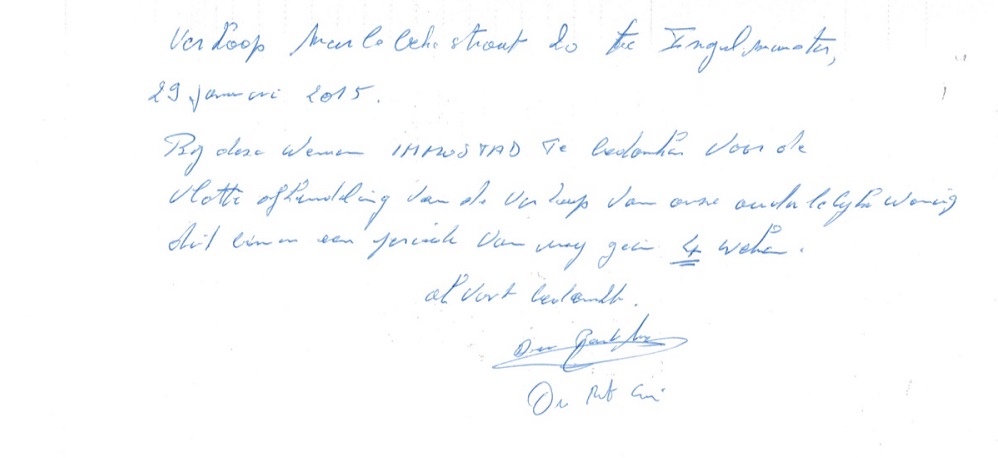 Verkoop straat 20 te Ingelmunster,
29 januari 2015.
Bij deze wensen IMMOSTAD te bedanken voor de
vlotte afhandeling van de verkoop van onze ouderlijke woning
dit binnen een periode van nog geen 4 weken.
alvast bedankt.